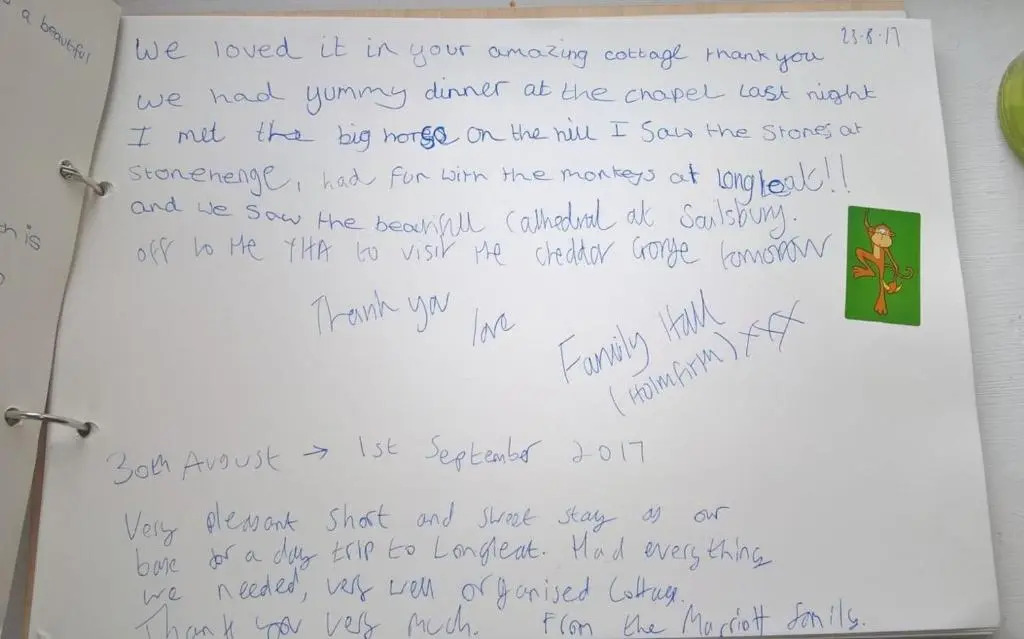 a beautiful
23-8-17
We loved it in your amazing cottage thank you
we had yummy dinner at the chapel last night
I met the big horse on the hill I saw the stones at
stonehenge, had fun with the monkeys at longleat!!
and we saw the beautifull Cathedral at Sailsbury.
off to the YHA to visit the cheddar Gorge tomorrow
Thank you
love
Family Hall
(Holmfirth) xxx
30th August → 1st September 2017
Very pleasant short and sweet stay as our
base for a day trip to Longleat. Had everything
we needed, very well organised Cottage.
Thank you very much. From the Marriott family.